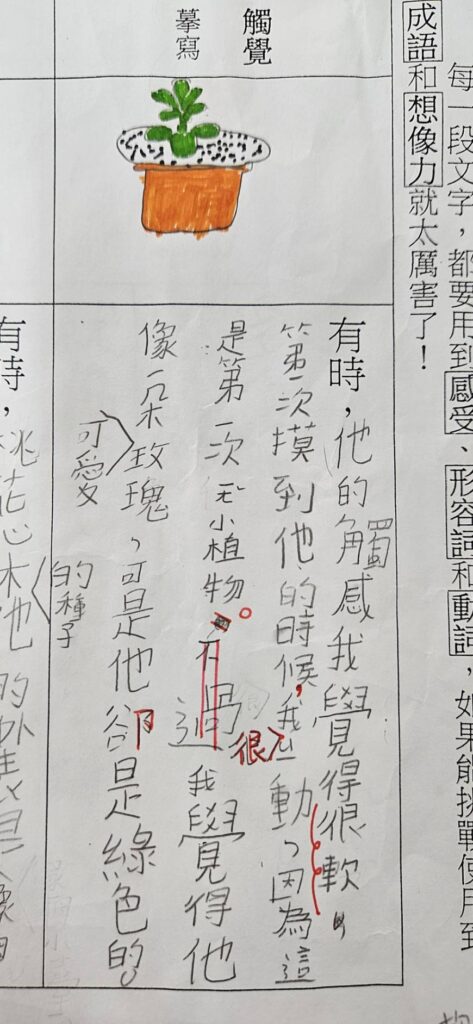 每一段文字，都要用到感受、形容詞和動詞，如果能挑戰使用到
成語和想像力就太厲害了！
觸覺
摹寫
有時，他的觸感我覺得很軟
第一次摸到他的時候，我很動，因為這
是第一次小植物。不過我覺得他
像一朵可愛玫瑰，可是他卻是綠色的。
有時，桃花心木的種子他的外表是